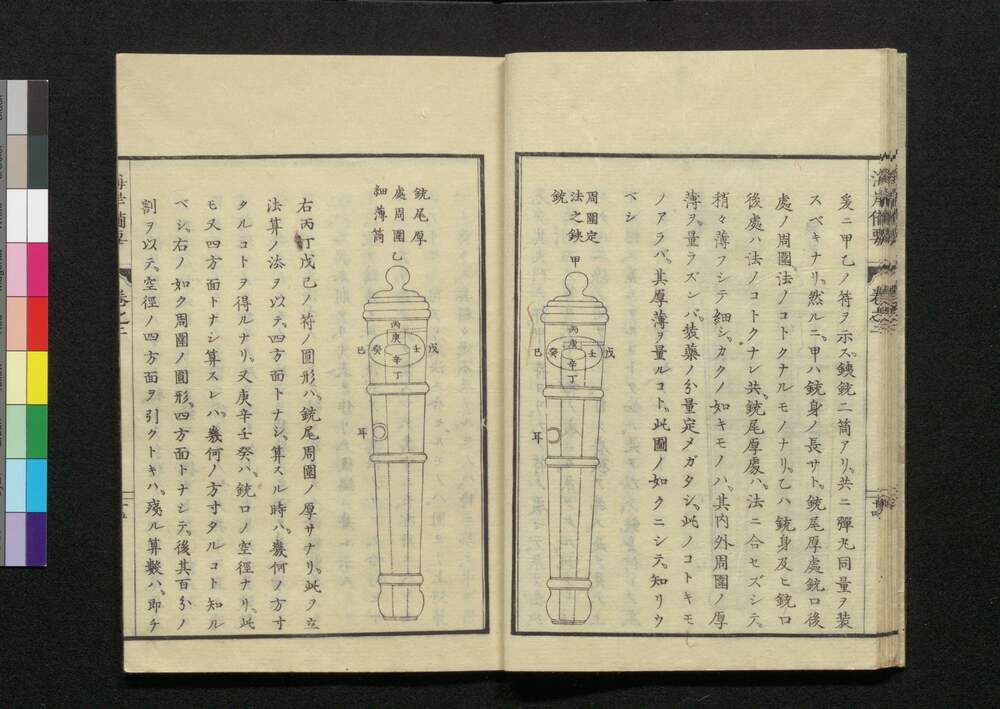 海岸備要
巻之三
爰ニ甲乙ノ符ヲ示ズ鋳銃二筒アリ。共ニ彈丸同量ヲ装
スベキナリ。然ルニ甲ハ銃身ノ長サト。銃尾厚處銃口後
處ノ周圍法ノコトクナルモノナリ。乙ハ銃身及ヒ銃口
後處ハ法ノコトクナレ共。銃尾厚處ハ。法ニ合セズシテ。
稍々薄フシテ細シ。カクノ如キモノハ。其内外周圍ノ厚
薄ヲ。量ラズンバ。装藥ノ分量定メガタシ。此ノコトキモ
ノアラバ。其厚薄ヲ量ルコト。此圖ノ如クニシテ。知リウ
ベシ
周圍定
法之鋳
銃
甲
丙
庚
戊
壬
癸
己
辛
丁
耳
銃尾厚
處周圍
細薄筒
乙
丙
庚
戊
壬
癸
己
辛
丁
耳
右丙丁戊己ノ符ノ圓形ハ。銃尾周圍ノ厚サナリ。此ヲ立
法算ノ法ヲ以テ。四方面トナシ。算スル時ハ。幾何ノ方寸
タルコトヲ得ルナリ。又庚辛壬癸ハ。銃口ノ空徑ナリ。此
モ又四方面トナシ算スレハ。幾何ノ方寸タルコト知ル
ベシ。右ノ如ク周圍ノ圓形。四方面トナシテ。後其百分ノ
割ヲ以テ。空徑ノ四方面ヲ引クトキハ。殘ル算數ハ。即チ
巻之三